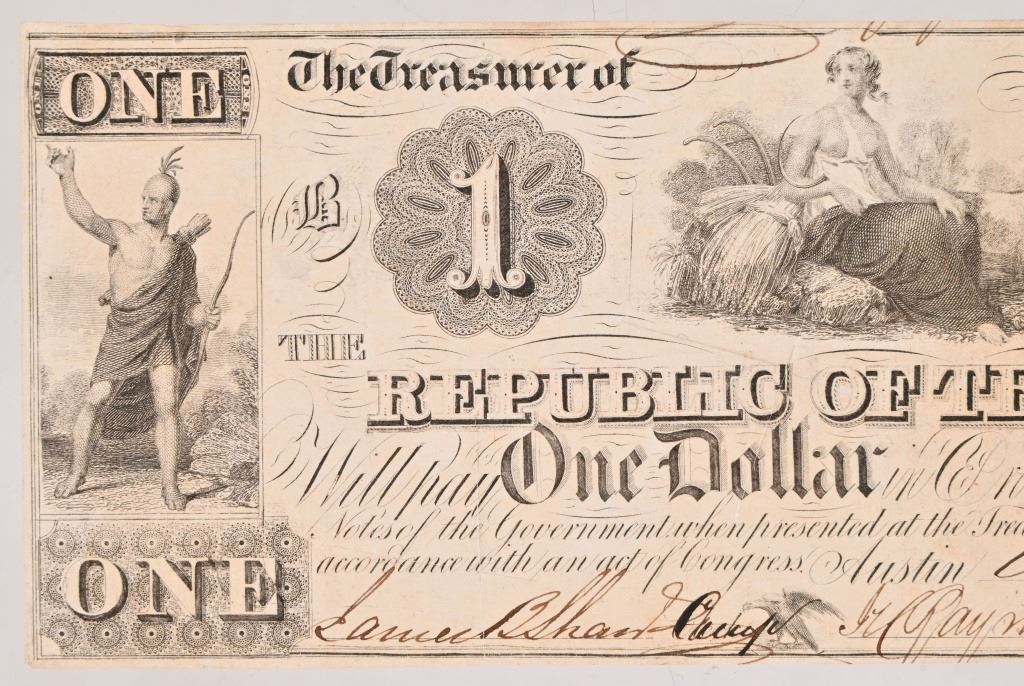 ONE
The Treasurer of
B
1
THE
REPUBLIC OF TE
Will pay One Dollar in
Notes of the Government, when presented at the Trea
accordance with an act of Congress. Austin
ONE
James B Shaw